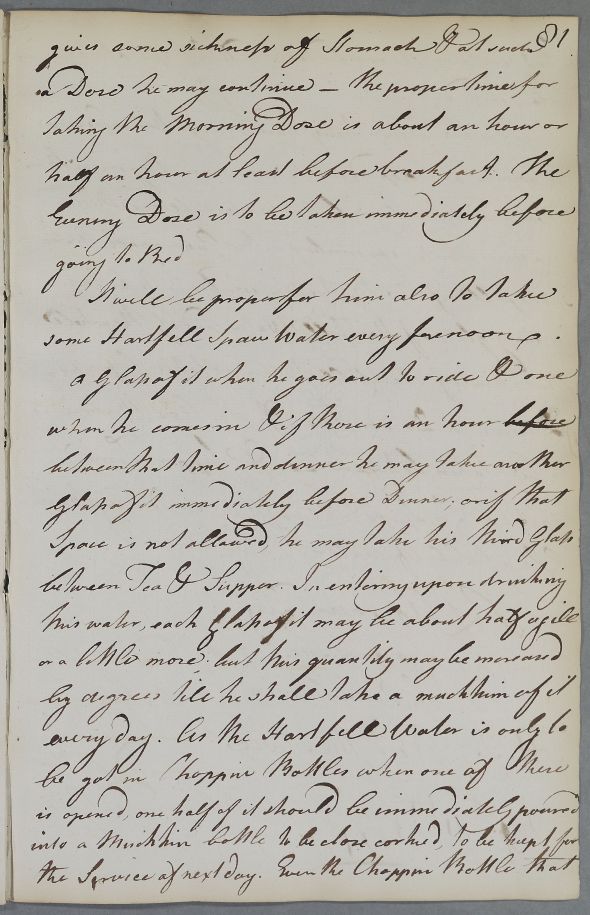 81
gives some sickness of Stomach & at such
a Dose he may continue – the proper time for
taking the Morning Dose is about an hour or
half an hour at least before breakfast. The
Evening Dose is to be taken immediately before
going to Bed
It will be proper for him also to take
some Hartfell Spaw Water every forenoon.
a Glass of it when he goes out to ride & one
when he comes in & if there is an hour before
between that time and dinner he may take another
Glass of it immediately before Dinner; or if that
Space is not allowed, he may take his third Glass
between Tea & Supper. In entering upon drinking
this water, each Glass of it may be about half a gill
or a little more but this quantity may be increased
by degrees till he shall take a muchkin of it
every day. As the Hartfell Water is only to
be got in Choppin Bottles when one of these
is opened, one half of it should be immediately poured
into a Muchkin bottle to be close corked, to be kept for
the Service of next day. Even the Choppin Bottle that